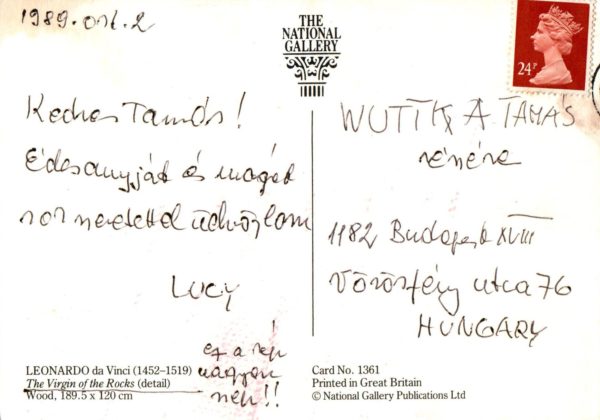 1989.
THE
NATIONAL
GALLERY
24P
Kedves Tamás!
Édesanyját és magát
sok szeretettel üdvözlöm
LUCY
ez a kép
nagyon
szép!!
WUTTKA TAMÁS
részére
1182 Budapest XVIII
Vörösfény utca 76
HUNGARY
LEONARDO da Vinci (1452–1519)
The Virgin of the Rocks (detail)
Wood, 189.5 x 120 cm
Card No. 1361
Printed in Great Britain
© National Gallery Publications Ltd